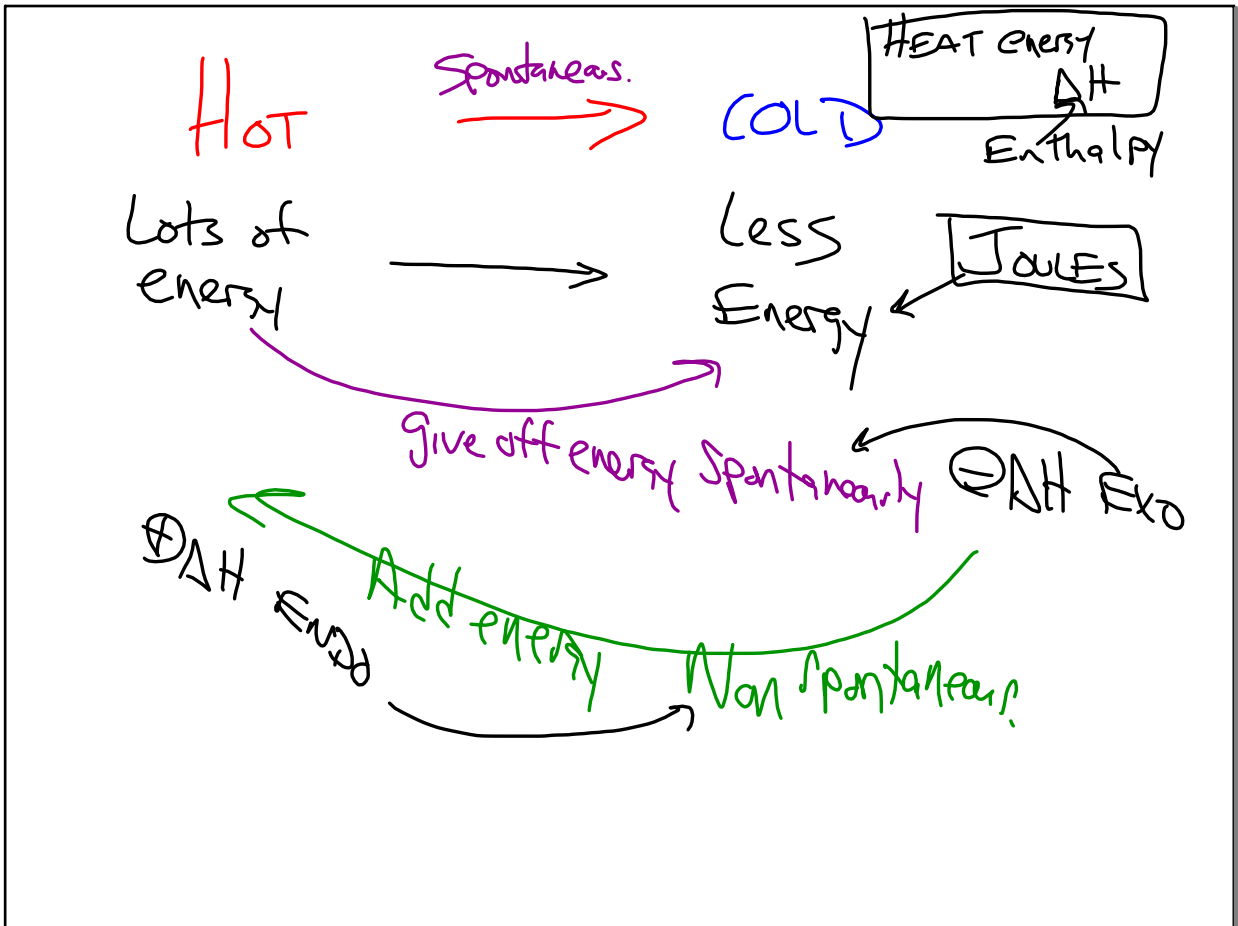 HOT
Spontaneous.
COLD
HEAT energy
ΔH
Enthalpy
Lots of
energy
Less
Energy
JOULES
Give off energy Spontaneously
⊖ΔH Exo
⊕ΔH Endo
Add energy
Non Spontaneous.